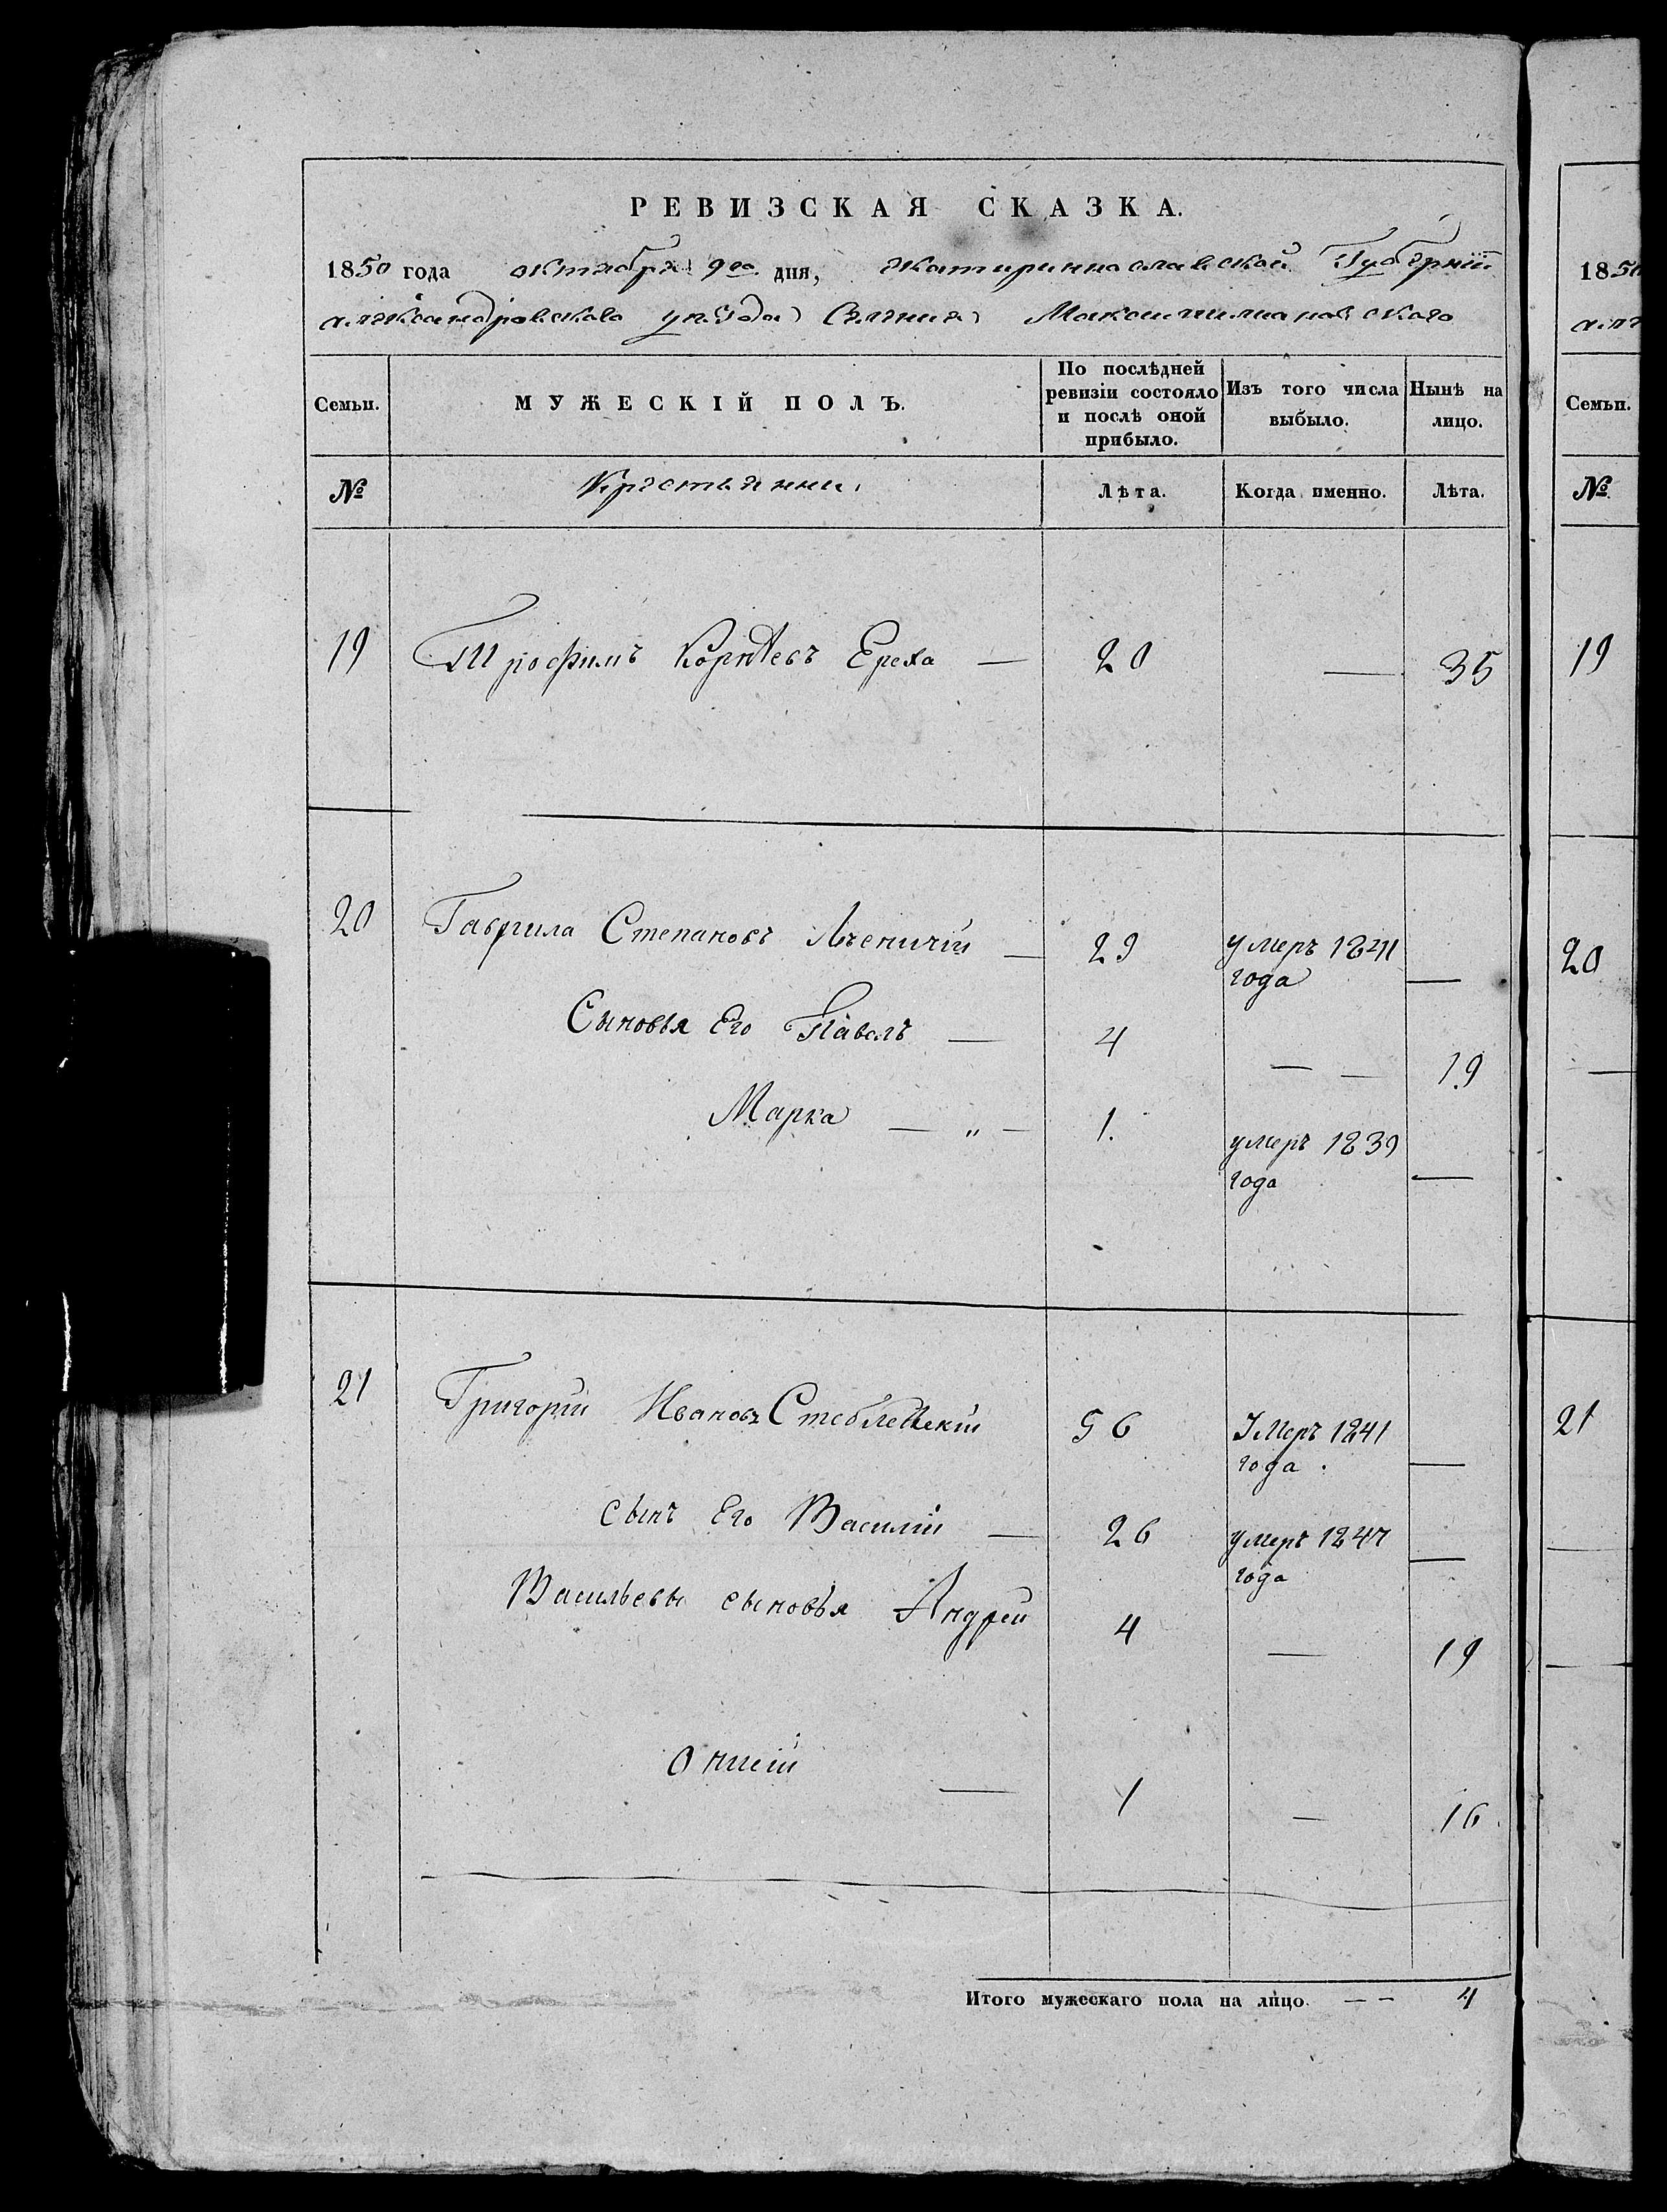 РЕВИЗСКАЯ СКАЗКА.
1850 года октября 9го дня, Екатиринославской Губернии
александровского уезда Селения Максимилиановского
Семьи. МУЖЕСКІЙ ПОЛЪ. По послѣдней ревизіи состояло и послѣ оной прибыло. Изъ того числа выбыло. Нынѣ на лицо.
№ Крестьянни. Лѣта. Когда именно. Лѣта.
19 Трофимъ Корнѣевъ Ереха — 20 — 35
20 Гаврила Степановъ — 29 умеръ 1841 года —
Сыновья Его Павелъ — 4 — — 19
Марка — „ — 1. умеръ 1839 года —
21 Григорій Ивановъ Стеблевскій 56 Умеръ 1841 года. —
сынъ Его Василій — 26 умеръ 1847 года —
Васильевы сыновья Андрей 4 — 19
Онисій — 1 — 16.
Итого мужескаго пола на лицо. — — 4
1850
Семьи.
№
19
20
21